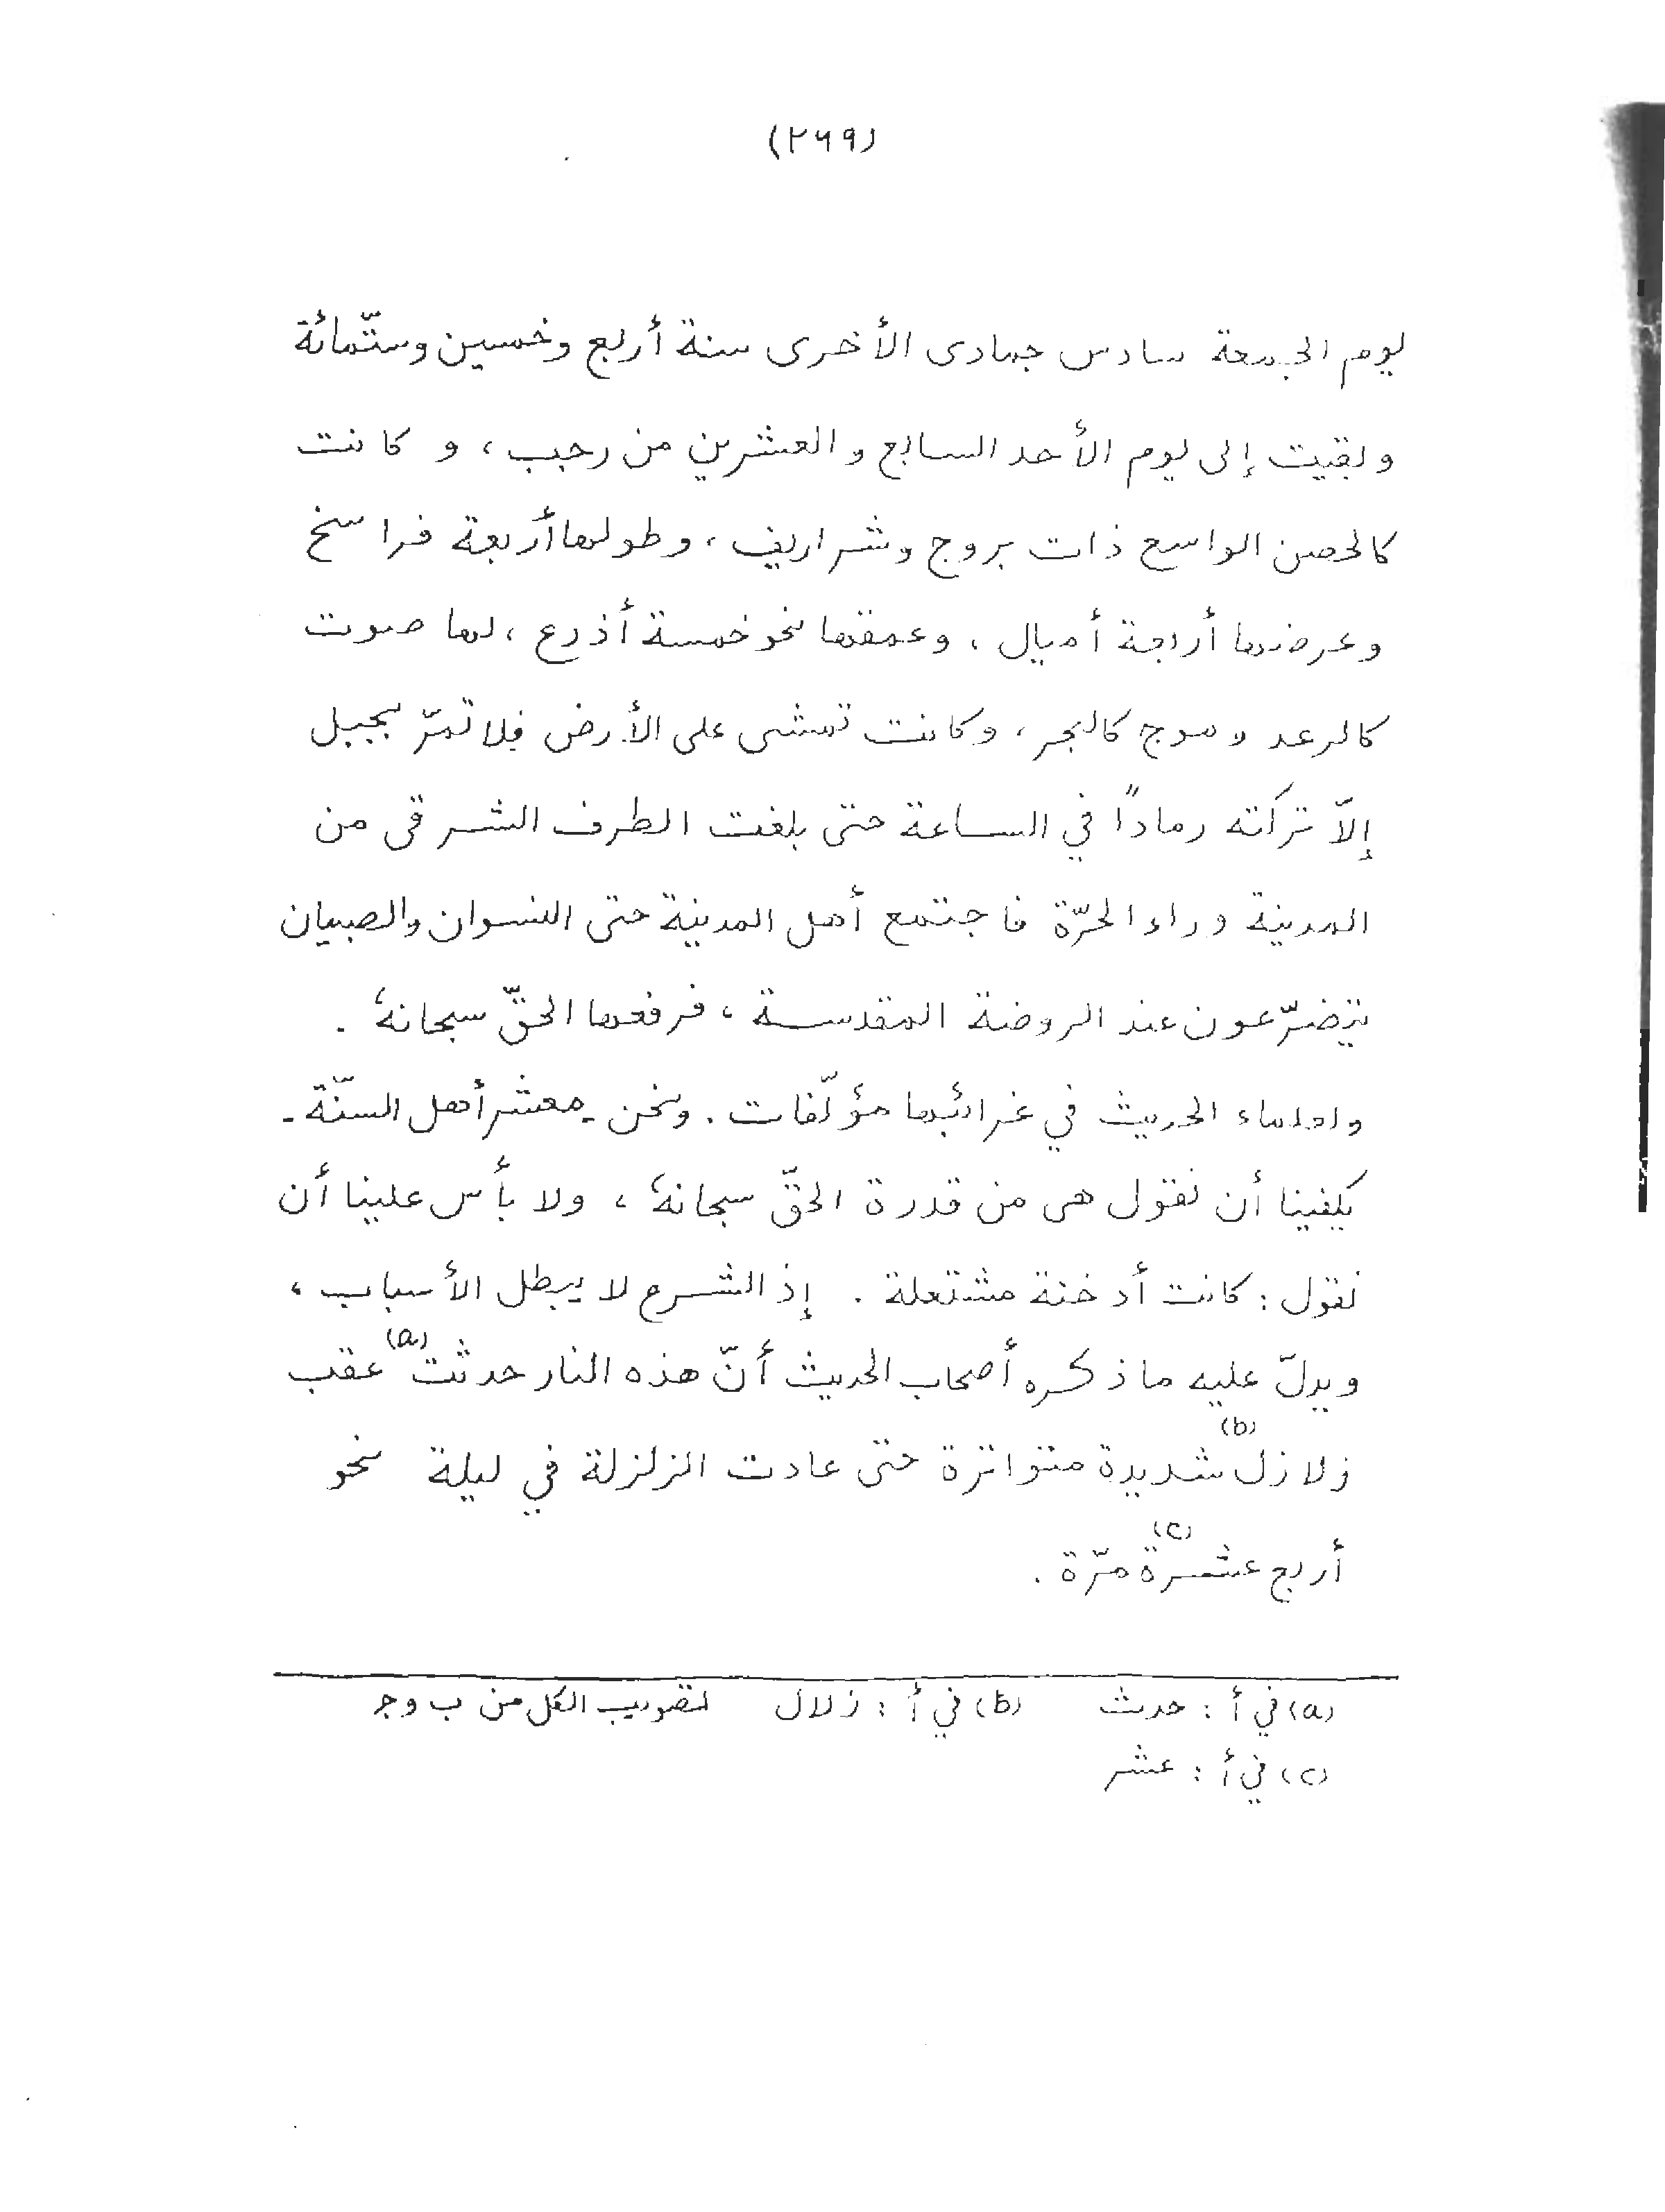 (٢٦٩)
يوم الجمعة سادس جمادى الأخرى سنة أربع وخمسين وستّمائة
وبقيت إلى يوم الأحد السابع والعشرين من رجب، و كانت
كالحصن الواسع ذات بروج وشراريف، وطولها أربعة فراسخ
وعرضها أربعة أميال، وعمقها نحو خمسة أذرع، لها صوت
كالرعد وموج كالبحر، وكانت تمشى على الأرض فلا تمرّ بجبل
إلاّ تركته رمادًا في الساعة حتى بلغت الطرف الشرقى من
المدينة وراء الحرّة فاجتمع أهل المدينة حتى النسوان والصبيان
يتضرّعون عند الروضة المقدسة، فرفعها الحقّ سبحانهُ.
ولعلماء الحديث في غرائبها مؤلّفات. ونحن - معشر أهل السنّة -
يكفينا أن نقول هى من قدرة الحقّ سبحانهُ، ولا بأس علينا أن
نقول: كانت أدخنة مشتعلة. إذ الشرع لا يبطل الأسباب،
ويدلّ عليه ما ذكره أصحاب الحديث أنّ هذه النار حدثت(a) عقب
زلازل(b) شديدة متواترة حتى عادت الزلزلة في ليلة نحو
أربع عشرة(c) مرّة.
(a) في أ: حدث (b) في أ: زلال تصويب الكل من ب وج
(c) في أ: عشر